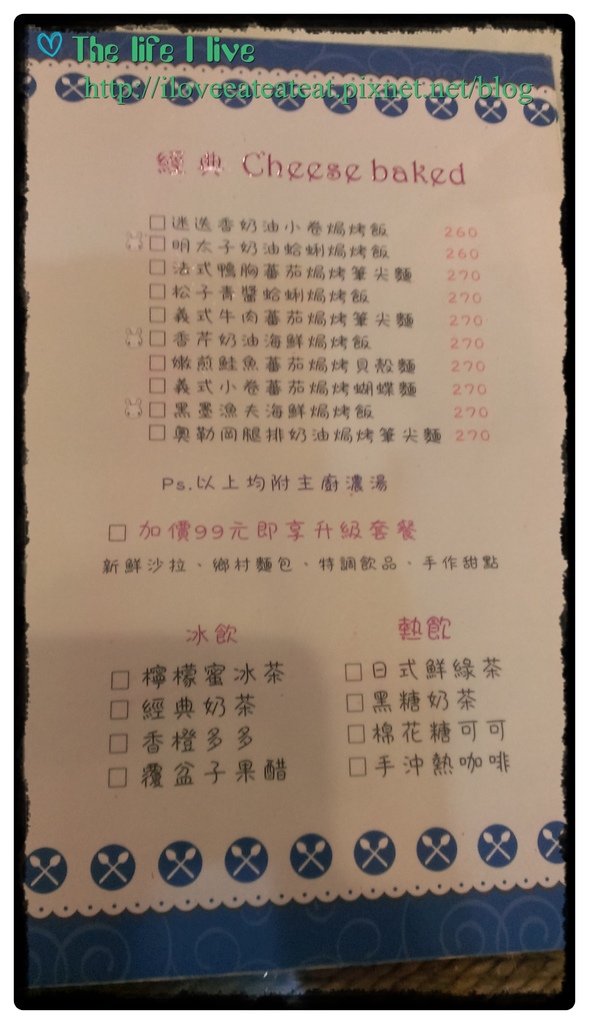 The life I live
http://iloveeateateat.pixnet.net/blog
經典 Cheese baked
□ 迷迭香奶油小卷焗烤飯 260
□ 明太子奶油蛤蜊焗烤飯 260
□ 法式鴨胸蕃茄焗烤筆尖麵 270
□ 松子青醬蛤蜊焗烤飯 270
□ 義式牛肉蕃茄焗烤筆尖麵 270
□ 香芹奶油海鮮焗烤飯 270
□ 嫩煎鮭魚蕃茄焗烤貝殼麵 270
□ 義式小卷蕃茄焗烤蝴蝶麵 270
□ 黑墨漁夫海鮮焗烤飯 270
□ 奧勒岡腿排奶油焗烤筆尖麵 270
Ps.以上均附主廚濃湯
□ 加價99元即享升級套餐
新鮮沙拉、鄉村麵包、特調飲品、手作甜點
冰飲
□ 檸檬蜜冰茶
□ 經典奶茶
□ 香橙多多
□ 覆盆子果醋
熱飲
□ 日式鮮綠茶
□ 黑糖奶茶
□ 棉花糖可可
□ 手沖熱咖啡